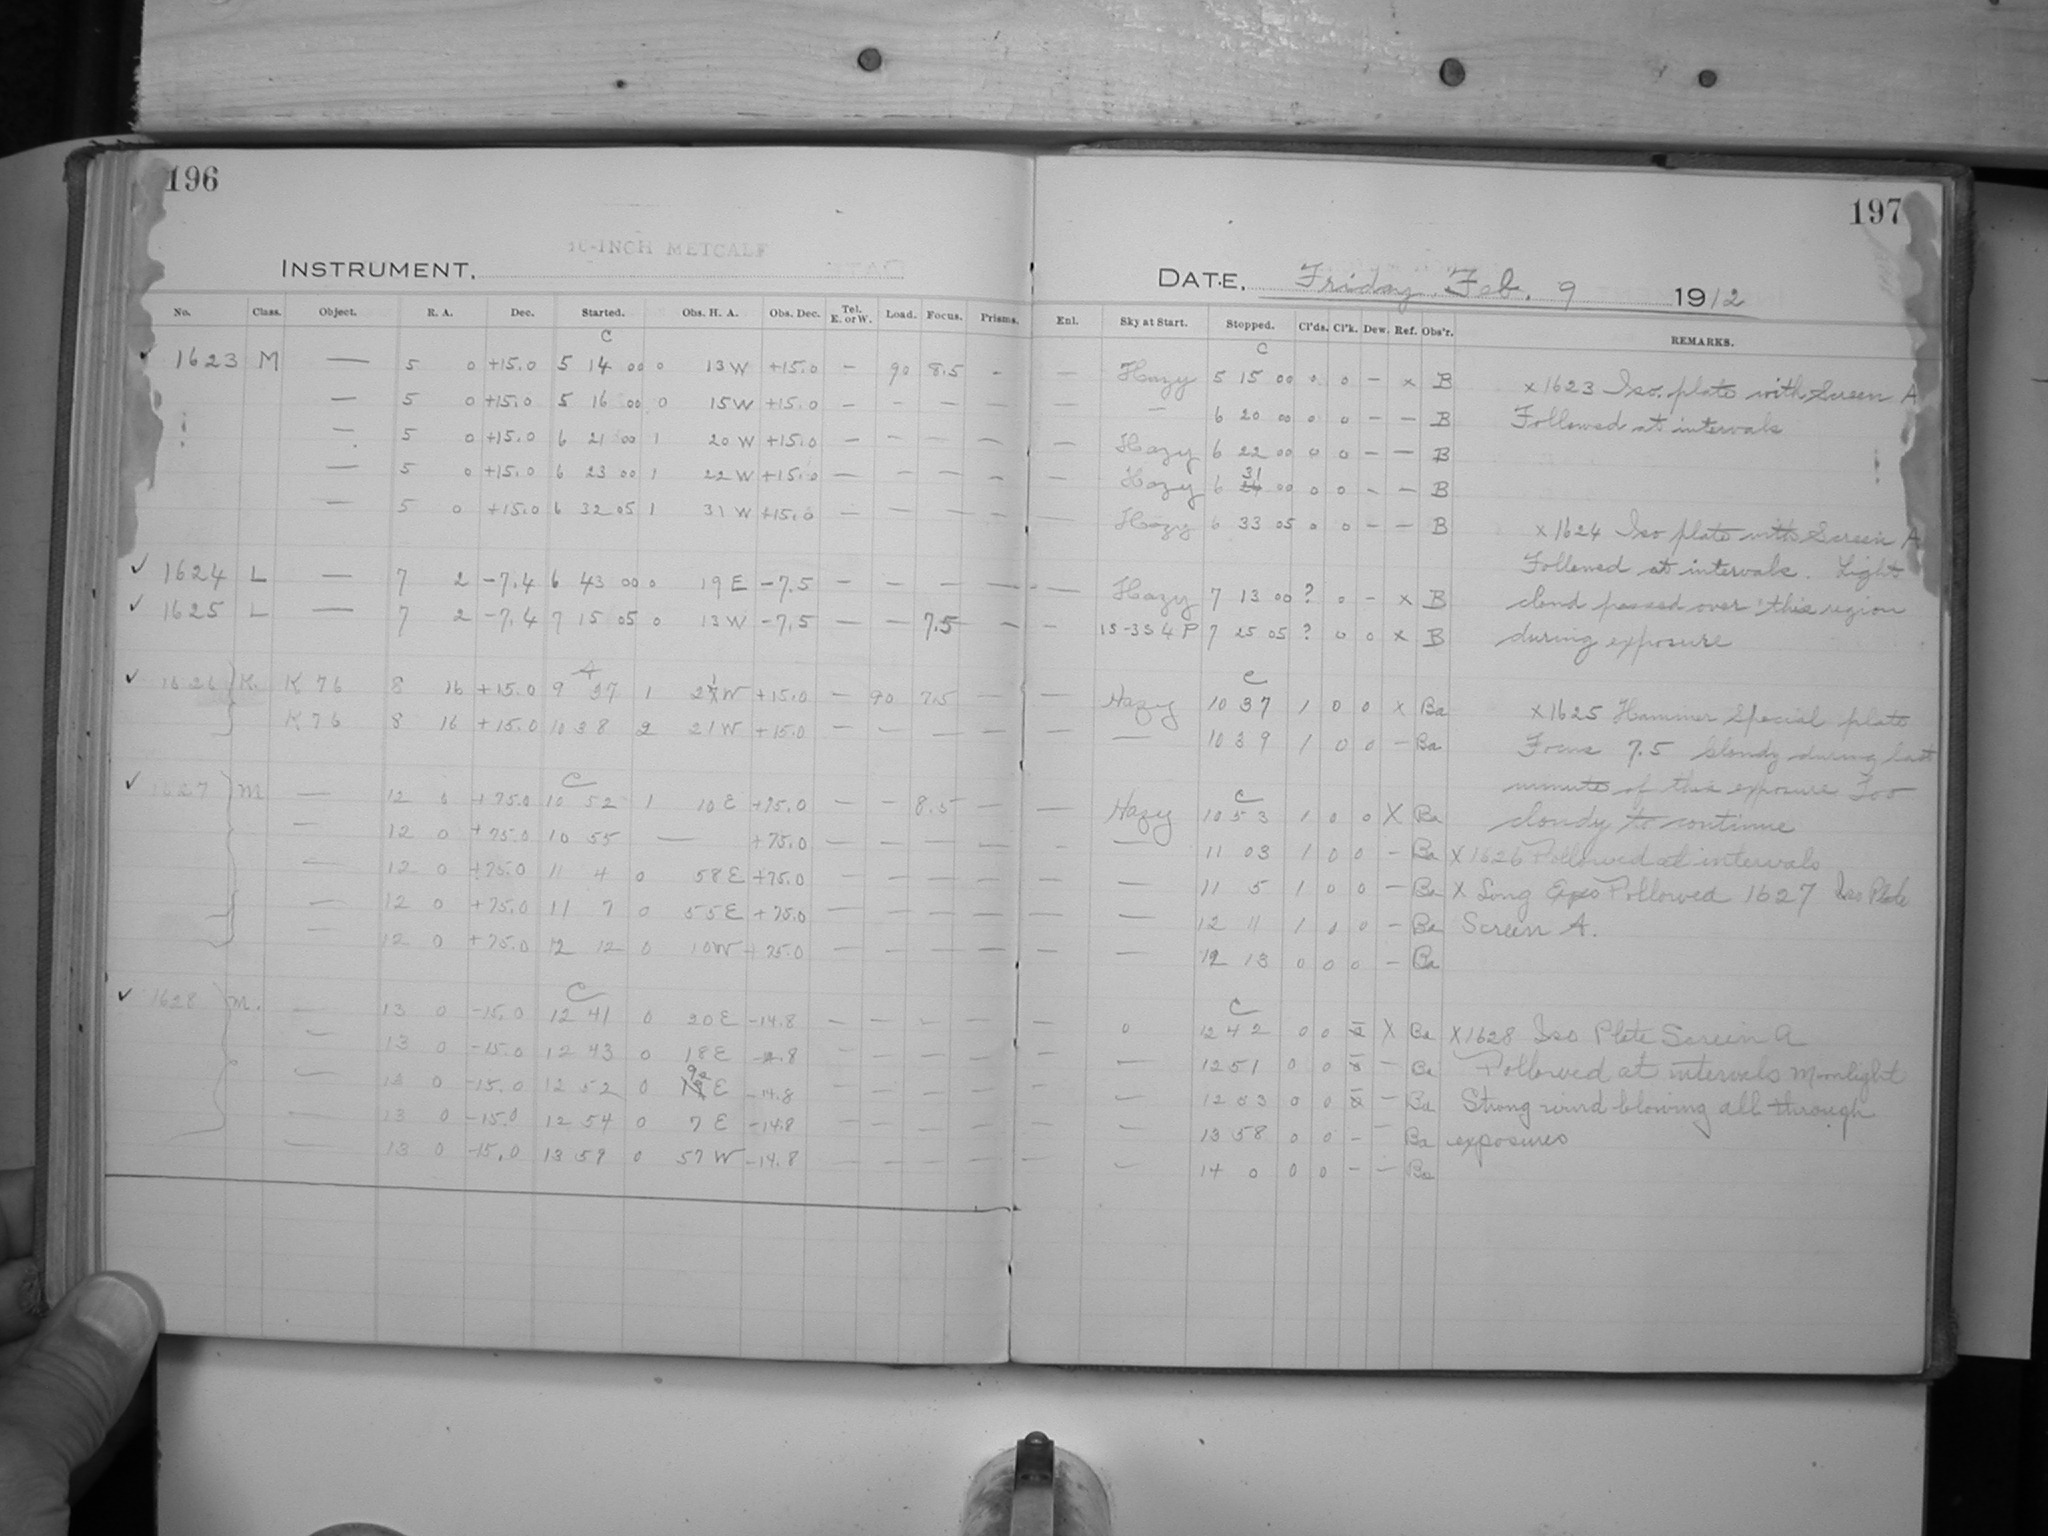 196
10-INCH METCALF
INSTRUMENT.
No. Class. Object. R. A. Dec. Started. Obs. H. A. Obs. Dec. Tel. E. or W. Load. Focus. Prisms.
C
✓ 1623 M — 5 0 +15.0 5 14 00 0 13 W +15.0 — 90 8.5 -
— 5 0 +15.0 5 16 00 0 15 W +15.0 — — — —
— 5 0 +15.0 6 21 00 1 20 W +15.0 — — — —
— 5 0 +15.0 6 23 00 1 22 W +15.0 — — — —
— 5 0 +15.0 6 32 05 1 31 W +15.0 — — — —
✓ 1624 L — 7 2 -7.4 6 43 00 0 19 E -7.5 — — — —
✓ 1625 L — 7 2 -7.4 7 15 05 0 13 W -7.5 — — 7.5 —
✓ 1626 K. K 76 8 16 +15.0 9 37 1 21 W +15.0 — 90 7.5 —
K 76 8 16 +15.0 10 38 2 21 W +15.0 — — — —
C
✓ 1627 M — 12 0 +75.0 10 52 1 10 E +75.0 — — 8.5 —
— 12 0 +75.0 10 55 — +75.0 — — — —
— 12 0 +75.0 11 4 0 58 E +75.0 — — — —
— 12 0 +75.0 11 7 0 55 E +75.0 — — — —
— 12 0 +75.0 12 12 0 10 W +75.0 — — — —
C
✓ 1628 M. — 13 0 -15.0 12 41 0 20 E -14.8 — — — —
— 13 0 -15.0 12 43 0 18 E -14.8 — — — —
— 13 0 -15.0 12 52 0 9 E -14.8 — — — —
— 13 0 -15.0 12 54 0 7 E -14.8 — — — —
— 13 0 -15.0 13 59 0 57 W -14.8 — — — —
197
DATE. Friday Feb. 9 1912
Enl. Sky at Start. Stopped. Cl'ds. Cl'k. Dew. Ref. Obs'r. REMARKS.
C
— Hazy 5 15 00 0 0 — x B x 1623 Iso. plate with Screen A
— — 6 20 00 0 0 — — B Followed at intervals
— Hazy 6 22 00 0 0 — — B
— Hazy 6 31 00 0 0 — — B
— Hazy 6 33 05 0 0 — — B x 1624 Iso plate with Screen A
Followed at intervals. Light
— Hazy 7 13 00 ? 0 — x B cloud passed over this region
— 1S-3S 4 P 7 25 05 ? 0 0 x B during exposure
C
— Hazy 10 37 1 0 0 x Ba x 1625 Hammer Special plate
— — 10 39 1 0 0 — Ba Focus 7.5 Cloudy during last
minute of this exposure Too
C
— Hazy 10 53 1 0 0 X Ba cloudy to continue
— — 11 03 1 0 0 — Ba X 1626 Followed at intervals
— — 11 5 1 0 0 — Ba X Long Expo Followed 1627 Iso Plate
— — 12 11 1 0 0 — Ba Screen A.
— — 12 13 0 0 0 — Ba
C
— 0 12 42 0 0 X Ba X 1628 Iso Plate Screen A
— — 12 51 0 0 — Ba Followed at intervals Moonlight
— — 12 53 0 0 — Ba Strong wind blowing all through
— — 13 58 0 0 — — Ba exposures
— — 14 0 0 0 — — Ba